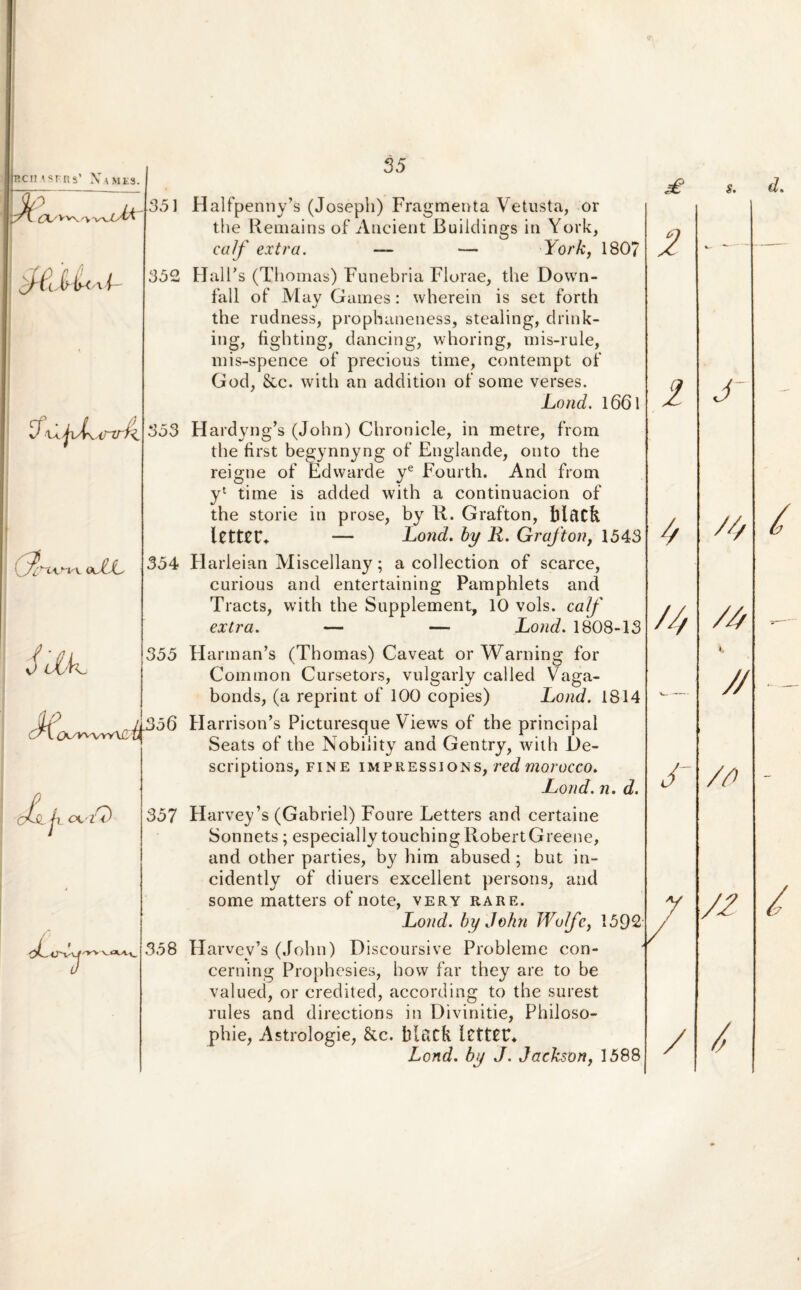 35
RCHASERS' NAMES.
£ s. d.
351 Halfpenny's (Joseph) Fragmenta Vetusta, or
the Remains of Ancient Buildings in York,
calf extra. — — York, 1807
2 - -
Hibbert
352 Hall's (Thomas) Funebria Florae, the Down-
fall of May Games: wherein is set forth
the rudness, prophaneness, stealing, drink-
ing, fighting, dancing, whoring, mis-rule,
mis-spence of precious time, contempt of
God, &c. with an addition of some verses.
Lond. 1661
2 5 -
353 Hardyng's (John) Chronicle, in metre, from
the first begynnyng of Englande, onto the
reigne of Edwarde yᵉ Fourth. And from
yᵗ time is added with a continuacion of
the storie in prose, by R. Grafton, black
letter. — Lond. by R. Grafton, 1543
4 14 6
354 Harleian Miscellany; a collection of scarce,
curious and entertaining Pamphlets and
Tracts, with the Supplement, 10 vols. calf
extra. — — Lond. 1808-13
14 14 -
355 Harman's (Thomas) Caveat or Warning for
Common Cursetors, vulgarly called Vaga-
bonds, (a reprint of 100 copies) Lond. 1814
- 11 -
356 Harrison's Picturesque Views of the principal
Seats of the Nobility and Gentry, with De-
scriptions, FINE IMPRESSIONS, red morocco.
Lond. n. d.
5 10 -
357 Harvey's (Gabriel) Foure Letters and certaine
Sonnets; especially touching Robert Greene,
and other parties, by him abused; but in-
cidently of diuers excellent persons, and
some matters of note, VERY RARE.
Lond. by John Wolfe, 1592
7 12 6
358 Harvey's (John) Discoursive Probleme con-
cerning Prophesies, how far they are to be
valued, or credited, according to the surest
rules and directions in Divinitie, Philoso-
phie, Astrologie, &c. black letter.
Lond. by J. Jackson, 1588
1 6